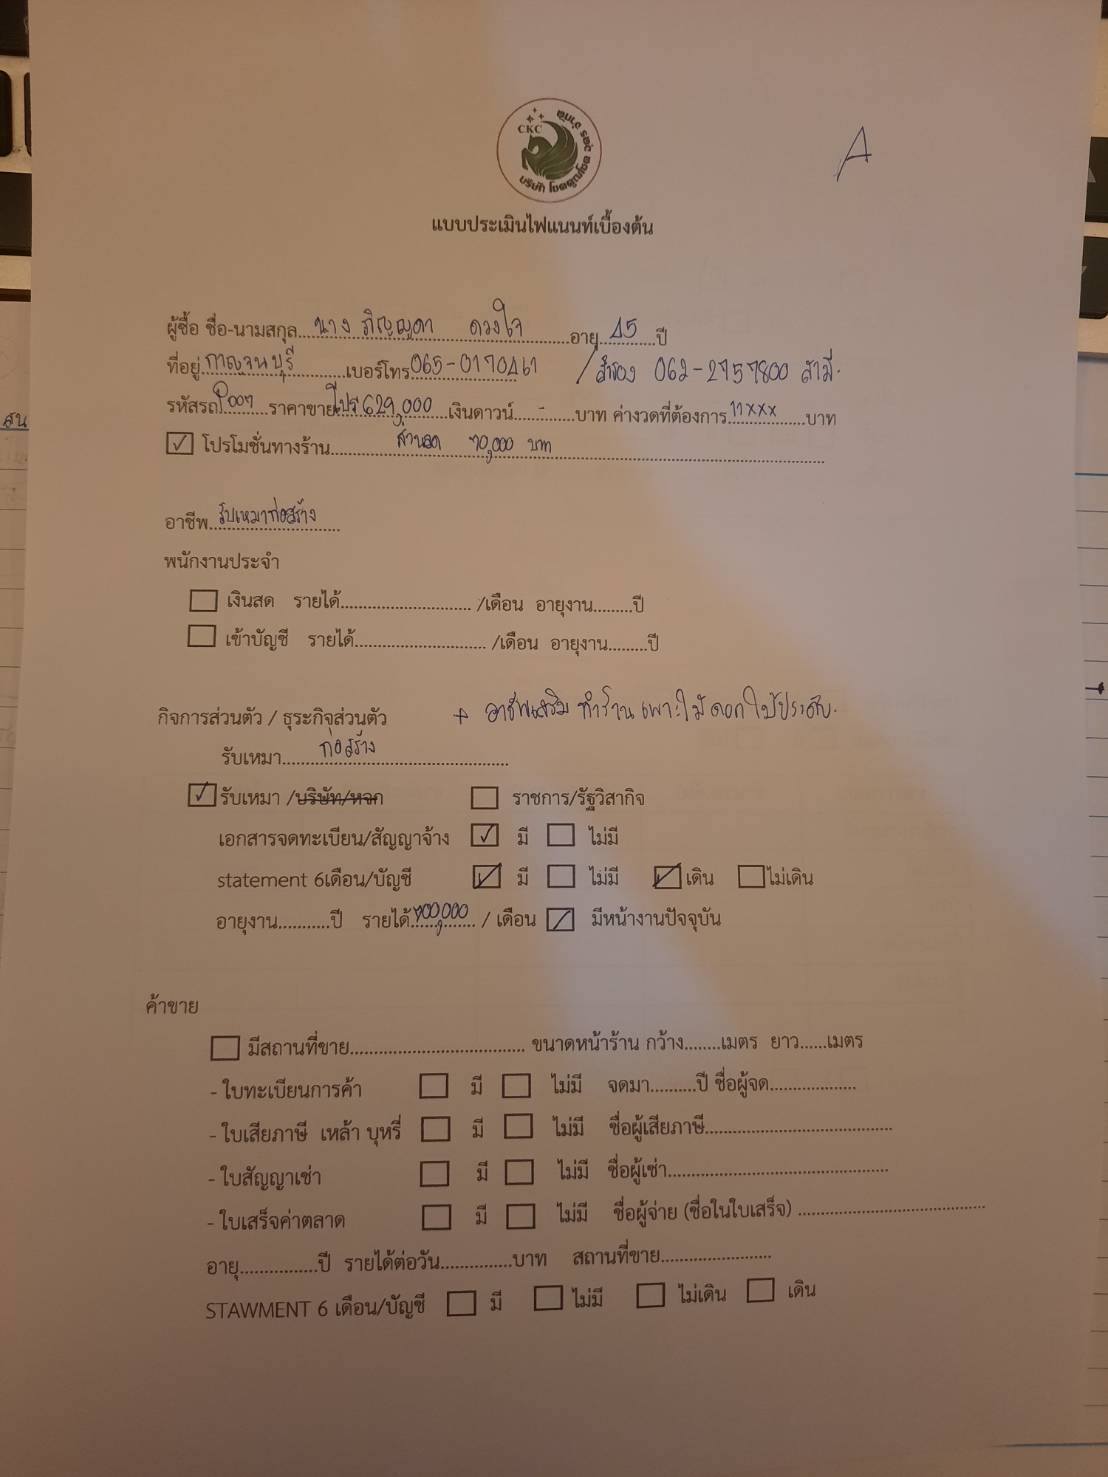 CKC
บริษัท โชคคูณโชค ดูดวร จำกัด
A
แบบประเมินไฟแนนท์เบื้องต้น
ผู้ซื้อ ชื่อ-นามสกุล นาง ภิญญดา ดวงใจ อายุ 45 ปี
ที่อยู่ กาญจนบุรี เบอร์โทร 065-0170461 / สำรอง 062-2757800 สามี.
รหัสรถ P007 ราคาขาย โปร 629,000 เงินดาวน์ - บาท ค่างวดที่ต้องการ 11xxx บาท
☑ โปรโมชั่นทางร้าน ส่วนลด 70,000 บาท
อาชีพ รับเหมาก่อสร้าง
พนักงานประจำ
☐ เงินสด รายได้ /เดือน อายุงาน ปี
☐ เข้าบัญชี รายได้ /เดือน อายุงาน ปี
กิจการส่วนตัว / ธุระกิจส่วนตัว + อาชีพเสริม ทำร้าน เพาะไม้ดอก ไม้ประดับ.
รับเหมา ก่อสร้าง
☑ รับเหมา /บริษัท/หจก ☐ ราชการ/รัฐวิสากิจ
เอกสารจดทะเบียน/สัญญาจ้าง ☑ มี ☐ ไม่มี
statement 6เดือน/บัญชี ☑ มี ☐ ไม่มี ☑ เดิน ☐ ไม่เดิน
อายุงาน ปี รายได้ 700,000 / เดือน ☑ มีหน้างานปัจจุบัน
ค้าขาย
☐ มีสถานที่ขาย ขนาดหน้าร้าน กว้าง เมตร ยาว เมตร
- ใบทะเบียนการค้า ☐ มี ☐ ไม่มี จดมา ปี ชื่อผู้จด
- ใบเสียภาษี เหล้า บุหรี่ ☐ มี ☐ ไม่มี ชื่อผู้เสียภาษี
- ใบสัญญาเช่า ☐ มี ☐ ไม่มี ชื่อผู้เช่า
- ใบเสร็จค่าตลาด ☐ มี ☐ ไม่มี ชื่อผู้จ่าย (ชื่อในใบเสร็จ)
อายุ ปี รายได้ต่อวัน บาท สถานที่ขาย
STAWMENT 6 เดือน/บัญชี ☐ มี ☐ ไม่มี ☐ ไม่เดิน ☐ เดิน